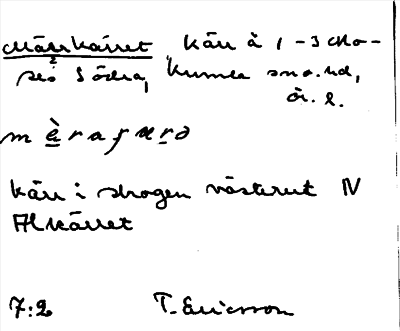 Märrkärret, Kärr å 1-3 Mo-
seö Södra, Kumla sn o. hd,
ör. l.
m è r a ɟ æ r ə
Kärr i skogen västerut N
Alkärret
7:2 T. Ericsson